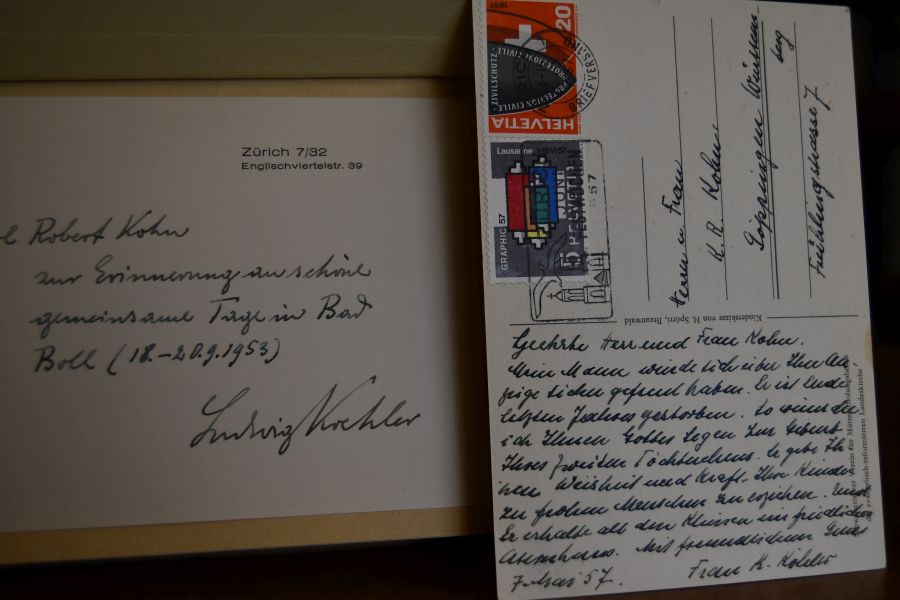 Zürich 7/32
Englischviertelstr. 39
Robert Kohn
zur Erinnerung an schöne
gemeinsame Tage in Bad
Boll (18.-20.9.1953)
Ludwig Koehler
1957
20
ZIVILSCHUTZ · PROTEZIONE CIVILE
PROTECTION CIVILE
HELVETIA
BRIEFVERSAND
Lausanne 1-16 VI 57
GRAPHIC 57
5 HELVETIA
57
Herrn u. Frau
K. R. Kohn
Göppingen Württem-
berg
Frühlingstrasse 7
Kinderskizze von H. Spörri, Braunwald
Verein für Müttererholungsheime
der evangelisch-reformierten Landeskirche
Geehrte Herr und Frau Kohn.
Mein Mann würde sich über Ihre An-
zeige sicher gefreut haben. Er ist Ende
letzten Jahres gestorben. So wünsche
ich Ihnen Gottes Segen zur Geburt
Ihres zweiten Töchterchens. Er gebe Ih-
nen Weisheit und Kraft, Ihre Kinder
zu frohen Menschen zu erziehen. Und
Er erhalte all den Kleinen ein friedliches
Mit freundlichem Gruss
Frau K. Köhler
7. Mai 57.